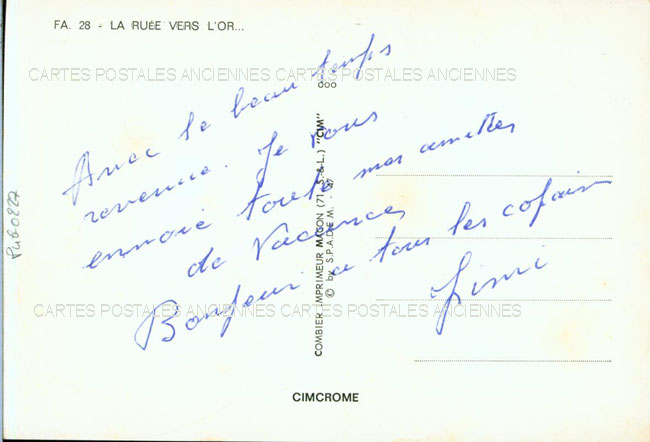 FA. 28 - LA RUÉE VERS L'OR...
CARTES POSTALES ANCIENNES CARTES POSTALES ANCIENNES
Avec le beau temps
revenue. Je vous
envoie toute mes amitiés
de Vacances
Bonjour a tous les copain
CARTES POSTALES ANCIENNES CARTES POSTALES ANCIENNES
COMBIER IMPRIMEUR MACON (71. S.-&-L.) "CIM"
© by S.P.A.D.E.M. - 
Pub0827
CIMCROME